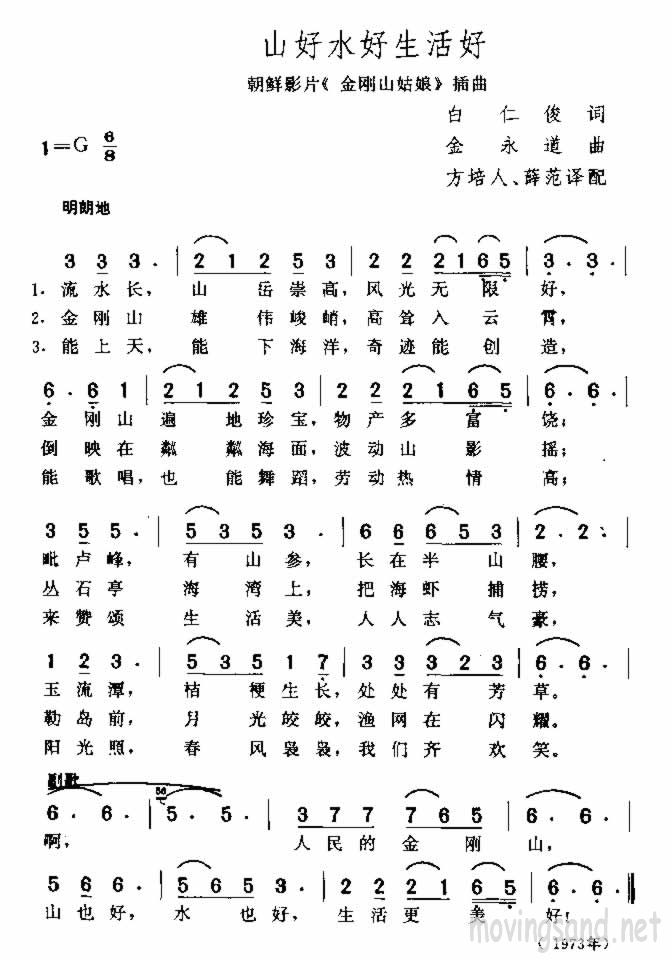 山好水好生活好
朝鲜影片《金刚山姑娘》插曲
白仁俊词
1=G 6/8
金永道曲
方培人、薛范译配
明朗地
3 3 3· | 2 1 2 5 3 | 2 2 2 1 6 5 | 3· 3· |
1. 流水长， 山岳崇高，风光无限好，
2. 金刚山 雄伟峻峭，高耸入云霄，
3. 能上天，能下海洋，奇迹能创造，
6· 6 1 | 2 1 2 5 3 | 2 2 2 1 6 5 | 6· 6· |
金刚山遍地珍宝，物产多富饶；
倒映在粼粼海面，波动山影摇；
能歌唱，也能舞蹈，劳动热情高；
3 5 5· | 5 3 5 3· | 6 6 6 5 3 | 2· 2· |
毗卢峰， 有山参， 长在半山腰，
丛石亭 海湾上， 把海虾捕捞，
来赞颂 生活美， 人人志气豪，
1 2 3· | 5 3 5 1 7 | 3 3 3 2 3 | 6· 6· |
玉流潭， 桔梗生长，处处有芳草。
勒岛前， 月光皎皎，渔网在闪耀。
阳光照， 春风袅袅，我们齐欢笑。
副歌
56
6· 6· | 5· 5· | 3 7 7 7 6 5 | 6· 6· |
啊， 人民的金刚山，
5 6 6· | 5 6 5 3· | 2 2 2 1 6 5 | 6· 6· ‖
山也好， 水也好， 生活更美好！
movingsand.net
（1973年）